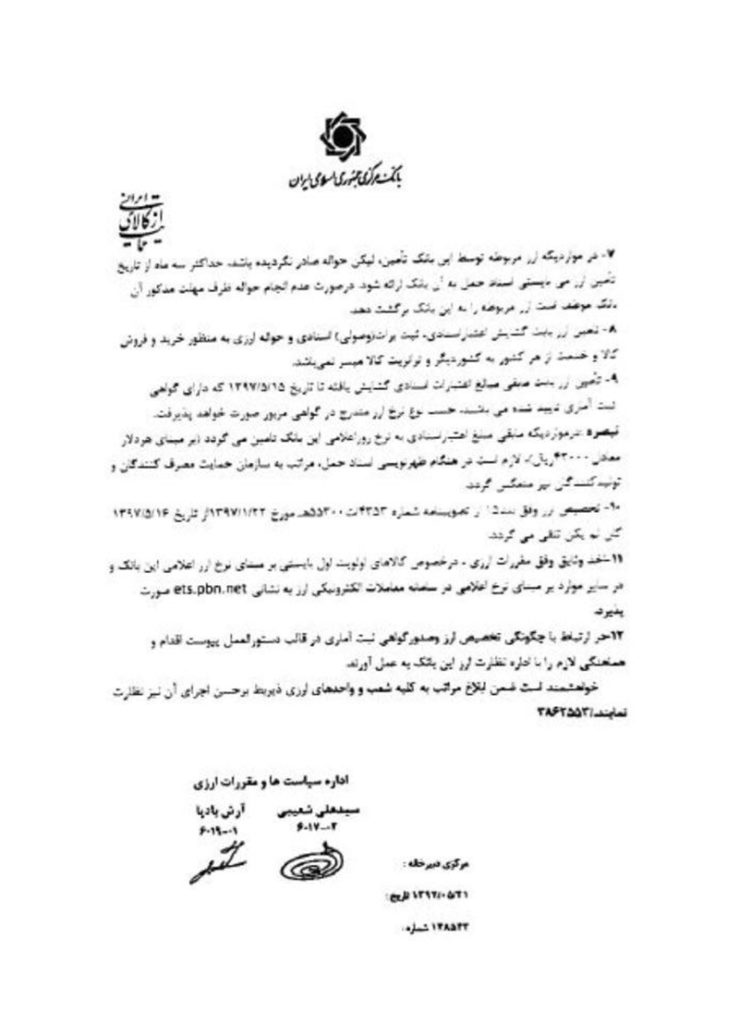 بانک مرکزی جمهوری اسلامی ایران
از کالای ایرانی
حمایت
۷- در مواردیکه ارز مربوطه توسط این بانک تأمین، لیکن حواله صادر نگردیده باشد، حداکثر سه ماه از تاریخ
تأمین ارز می بایستی اسناد حمل به آن بانک ارائه شود. درصورت عدم انجام حواله ظرف مهلت مذکور آن
بانک موظف است ارز مربوطه را به این بانک برگشت دهد.
۸- تامین ارز بابت گشایش اعتباراسنادی، ثبت برات(وصولی) اسنادی و حواله ارزی به منظور خرید و فروش
کالا و خدمت از هر کشور به کشوردیگر و ترانزیت کالا میسر نمی‌باشد.
۹- تأمین ارز بابت مابقی مبالغ اعتبارات اسنادی گشایش یافته تا تاریخ ۱۳۹۷/۵/۱۵ که دارای گواهی
ثبت آماری تایید شده می باشند، حسب نوع نرخ ارز مندرج در گواهی مزبور صورت خواهد پذیرفت.
تبصره :درمواردیکه مابقی مبلغ اعتباراسنادی به نرخ روزاعلامی این بانک تامین می گردد (بر مبنای هردلار
معادل ۴۲۰۰۰ریال)، لازم است در هنگام ظهرنویسی اسناد حمل، مراتب به سازمان حمایت مصرف کنندگان و
تولیدکنندگان نیز منعکس گردد.
۱۰- تخصیص ارز وفق بند۱۵ از تصویبنامه شماره ۴۳۵۳/ت۵۵۳۰۰هـ مورخ ۱۳۹۷/۱/۲۲از تاریخ ۱۳۹۷/۵/۱۶
کان لم یکن تلقی می گردد.
۱۱-اخذ وثایق وفق مقررات ارزی ، درخصوص کالاهای اولویت اول بایستی بر مبنای نرخ ارز اعلامی این بانک و
در سایر موارد بر مبنای نرخ اعلامی در سامانه معاملات الکترونیکی ارز به نشانی ets.pbn.net صورت
پذیرد.
۱۲-در ارتباط با چگونگی تخصیص ارز وصدورگواهی ثبت آماری در قالب دستورالعمل پیوست اقدام و
هماهنگی لازم را با اداره نظارت ارز این بانک به عمل آورند.
خواهشمند است ضمن ابلاغ مراتب به کلیه شعب و واحدهای ارزی ذیربط برحسن اجرای آن نیز نظارت
نمایند./۳۸۶۲۵۵۳
اداره سیاست ها و مقررات ارزی
سیدعلی شعیبی آرش بادپا
۶۰۱۷-۰۲ ۶۰۱۹-۰۱
مرکزی دبیرخانه :
۱۳۹۷/۰۵/۲۱ تاریخ:
۱۴۸۵۴۲ شماره: